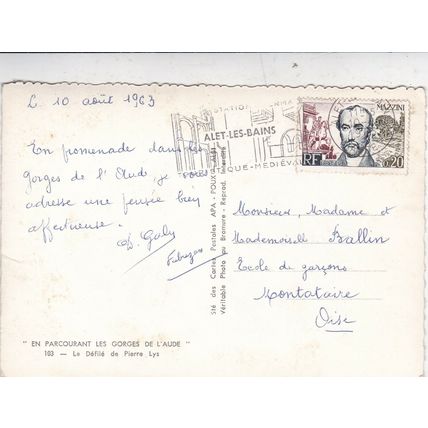 L. 10 août 1963
En promenade dans les
gorges de l'Aude je vous
adresse une pensée bien
affectueuse.
D. Galy
STATION
ALET-LES-BAINS
QUE-MEDIÉVA
MAZZINI
RF
0,20
Sté des Cartes Postales APA - POUX - ALBI
Véritable Photo au Bromure - Reprod. Interdite
Monsieur, Madame et
Mademoiselle Ballin
Ecole de garçons
Montataire
Oise
" EN PARCOURANT LES GORGES DE L'AUDE "
103 — Le Défilé de Pierre Lys